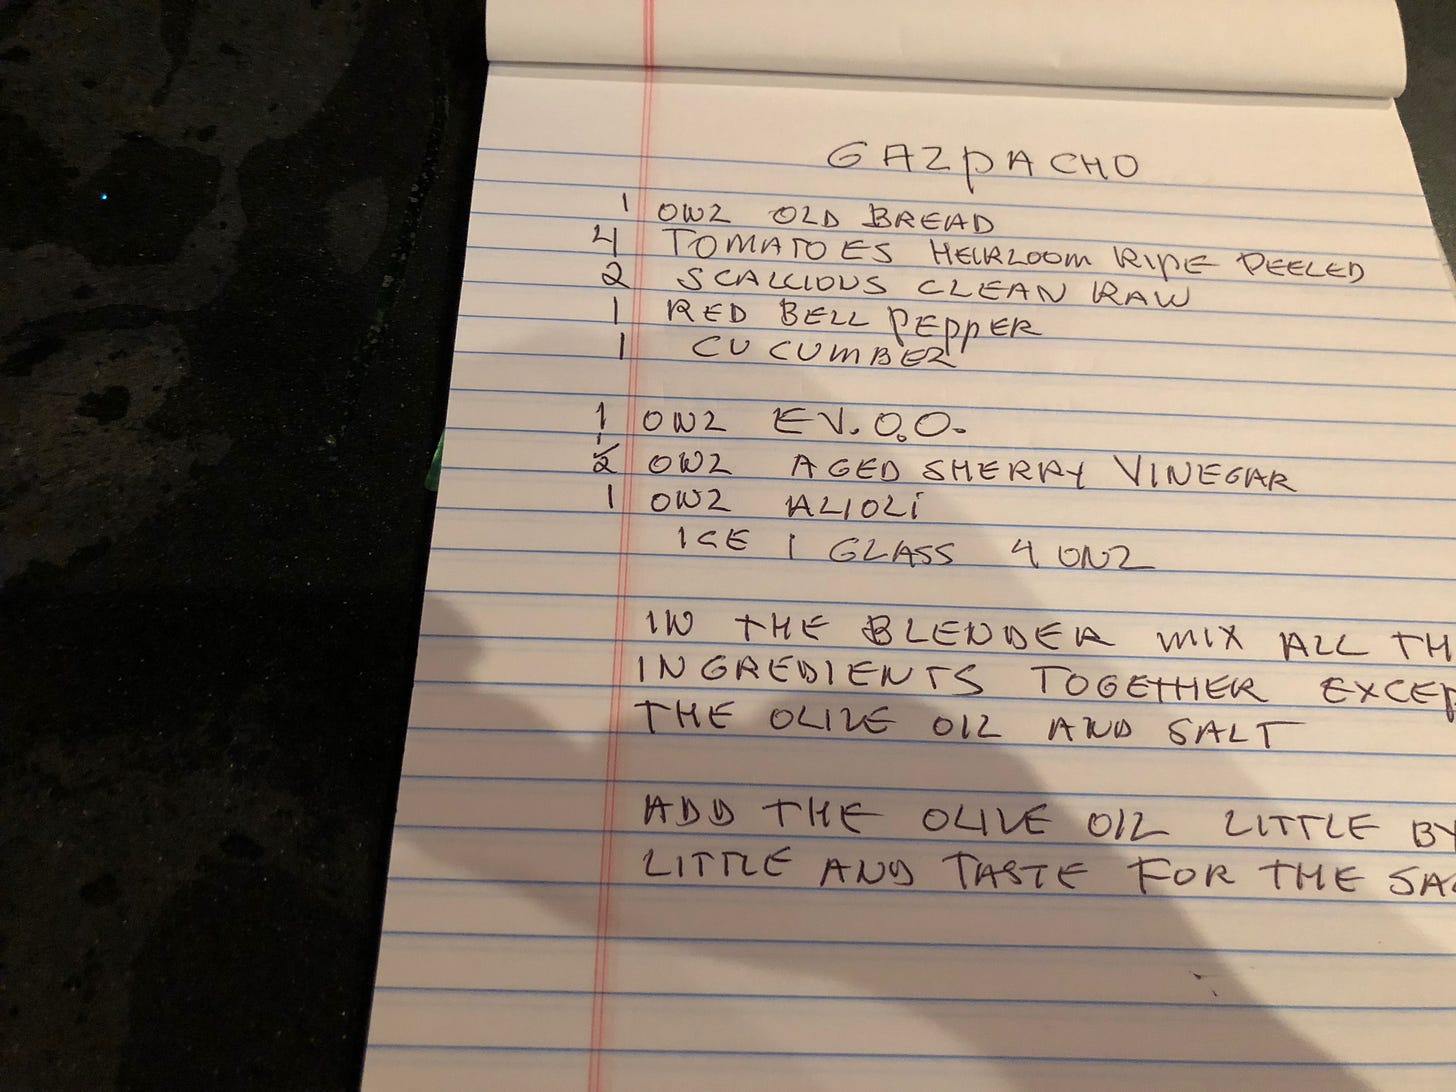 GAZPACHO
1 OWZ OLD BREAD
4 TOMATOES HEIRLOOM RIPE PEELED
2 SCALLIOUS CLEAN RAW
1 RED BELL PEPPER
1 CUCUMBER
1 OWZ E.V.O.O.
1/2 OWZ AGED SHERRY VINEGAR
1 OWZ ALIOLI
ICE 1 GLASS 4 ONZ
IN THE BLENDER MIX ALL TH
INGREDIENTS TOGETHER EXCEP
THE OLIVE OIL AND SALT
ADD THE OLIVE OIL LITTLE BY
LITTLE AND TASTE FOR THE SA